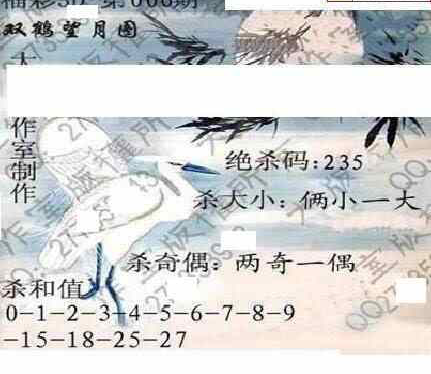 福彩3D 第008期
双鹤望月图
作室制作
绝杀码:235
杀大小:俩小一大
杀奇偶:两奇一偶
杀和值
0-1-2-3-4-5-6-7-8-9
-15-18-25-27